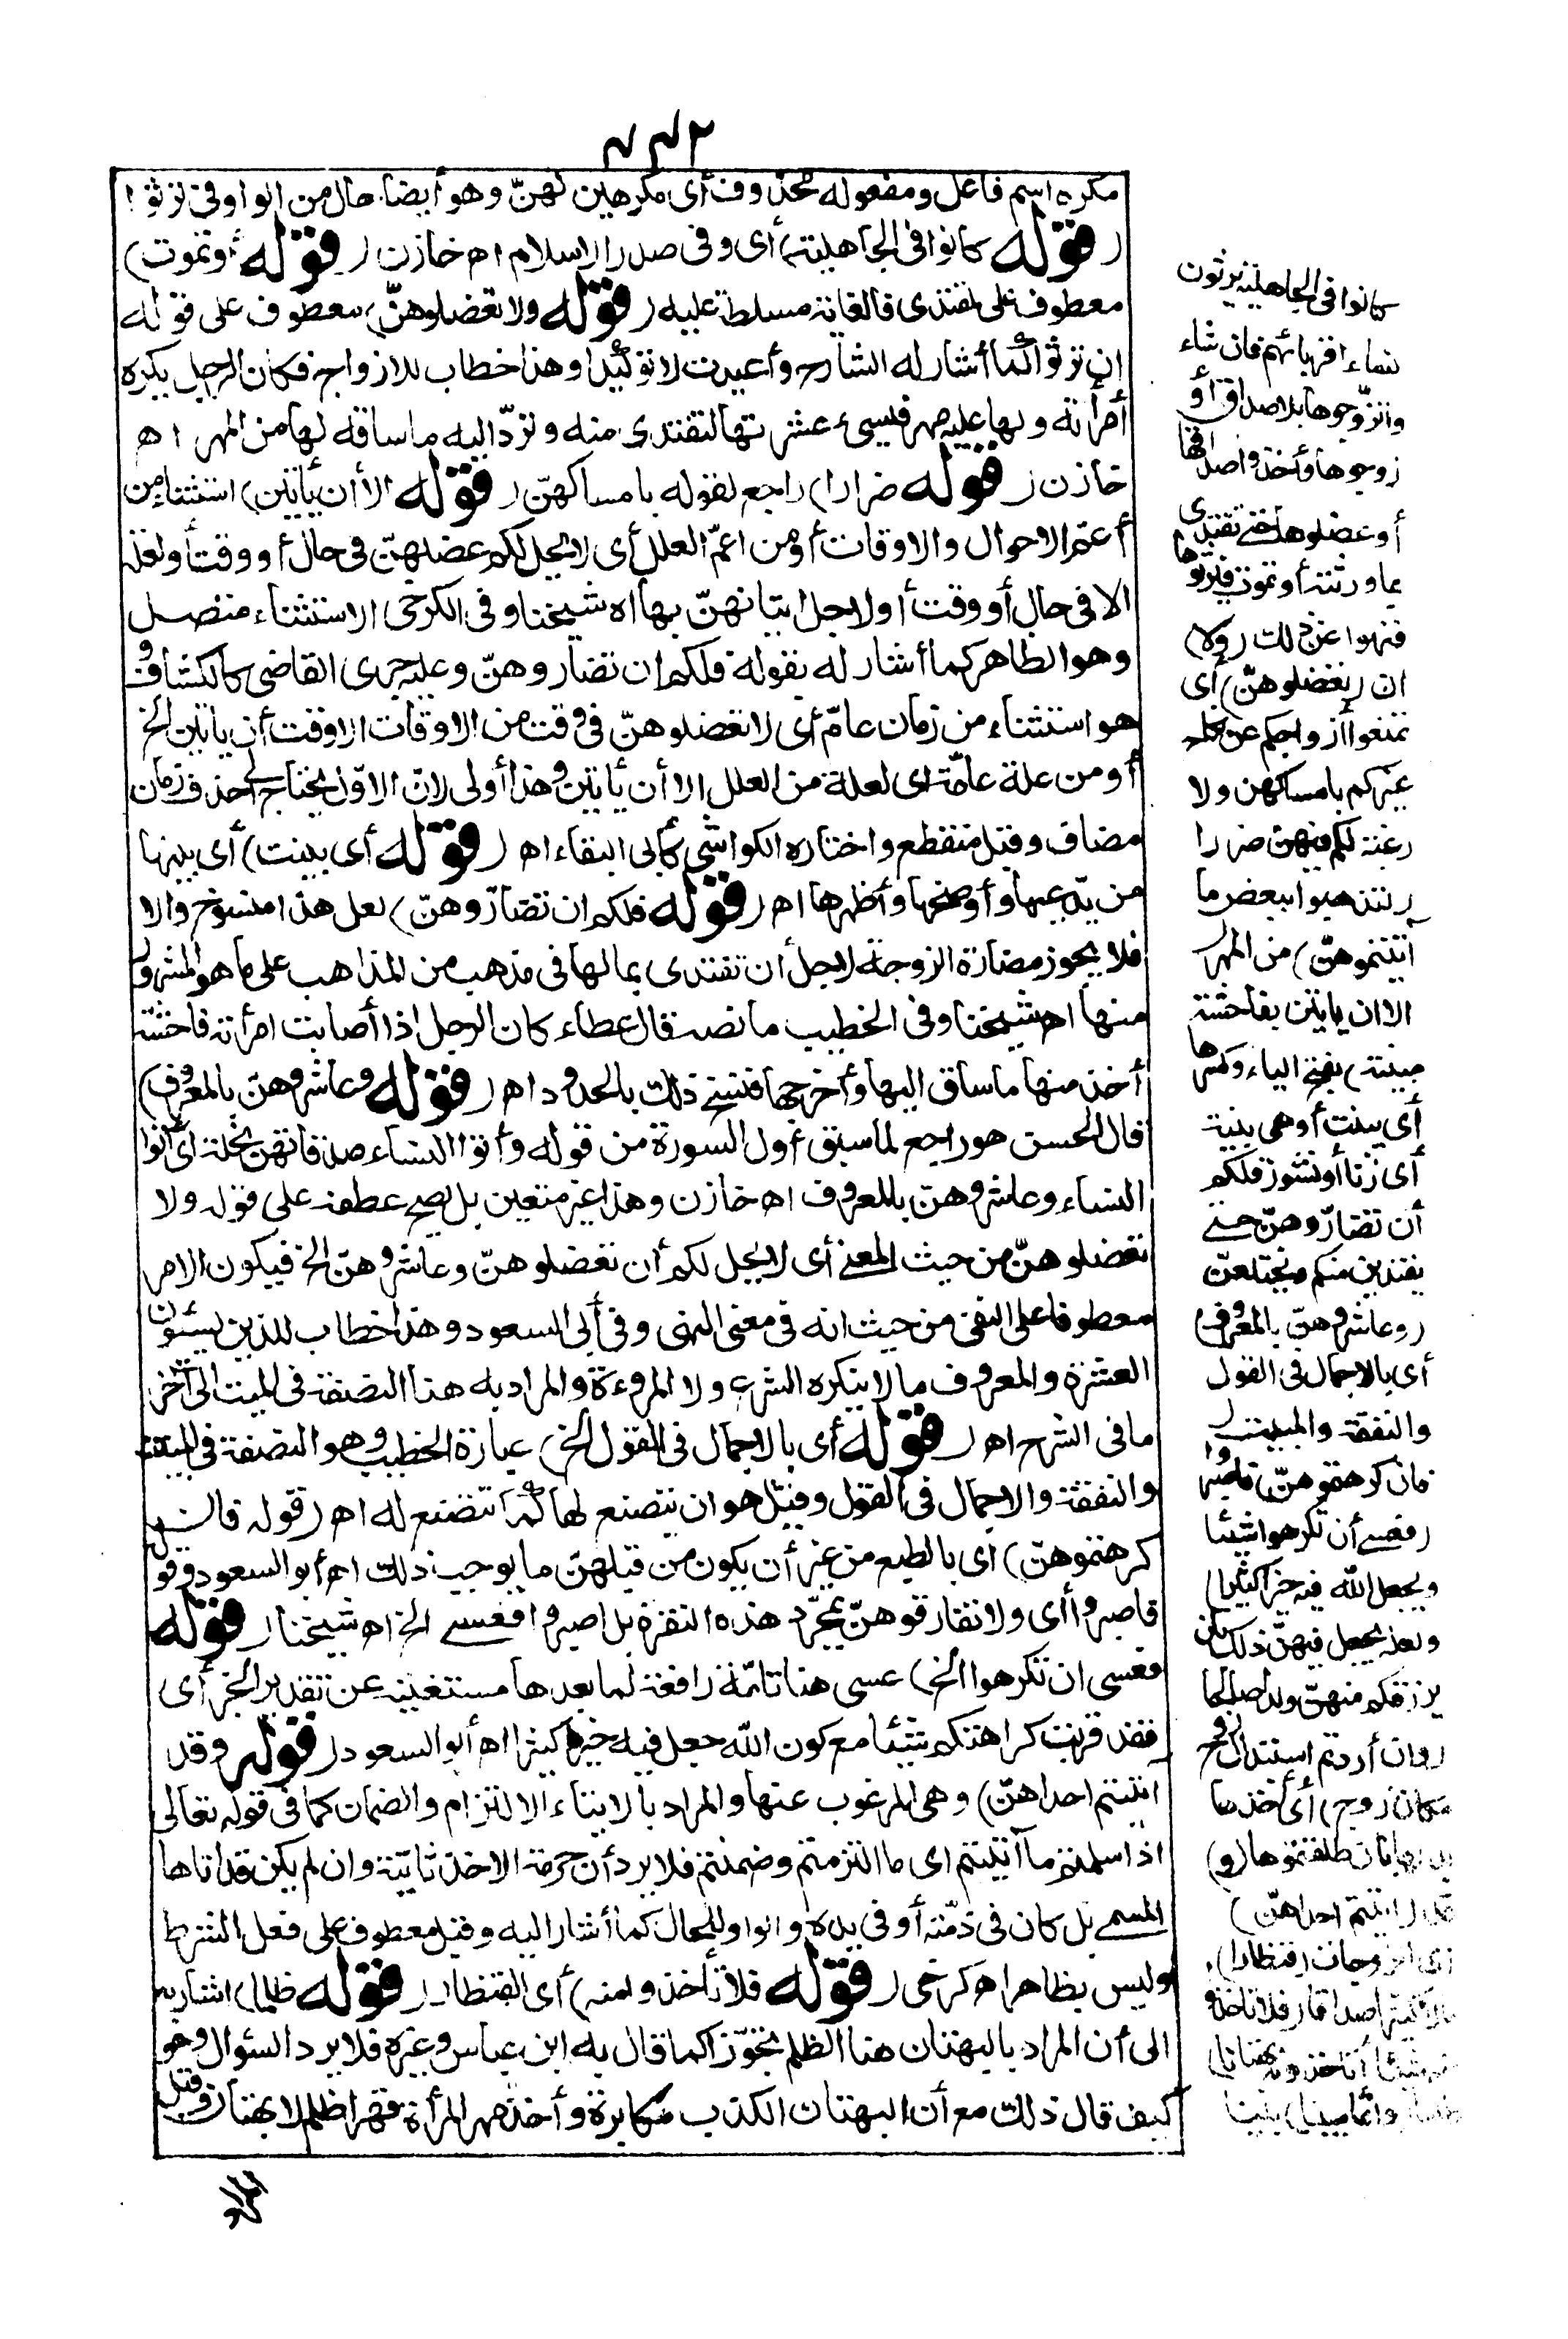 ٤٤٢
مكره اسم فاعل ومفعوله محذوف أى مكرهين لهنّ وهو أيضا حال من الواو فى ترثوا
(قوله كانوا فى الجاهلية) أى وفى صدر الاسلام اه خازن (قوله أو تموت)
معطوف على تفتدى فالغاية مسلطة عليه (قوله ولا تعضلوهنّ) معطوف على قوله
ان ترثوا كما أشار له الشارح وأعيدت لا توكيدا وهذا خطاب للازواج فكان الرجل يكره
امرأته ولها عليه مهر فيسىء عشرتها لتفتدى منه وتردّ اليه ما ساقه لها من المهر اه
خازن (قوله ضرارا) راجع لقوله بامساكهنّ (قوله الا أن يأتين) استثناء من
أعمّ الاحوال والاوقات أو من اعمّ العلل أى لا يحل لكم عضلهنّ فى حال أو وقت أو لعلة
الا فى حال أو وقت أو لاجل اتيانهنّ بها اه شيخنا وفى الكرخى الاستثناء متصل
وهو الظاهر كما أشار له بقوله فلكم ان تضاروهنّ وعليه جرى القاضى كالكشاف و
هو استثناء من زمان عامّ أى لا تعضلوهنّ فى وقت من الاوقات الا وقت أن يأتين الخ
أو من علة عامّة اى لعلة من العلل الا أن يأتين وهذا أولى لانّ الاوّل يحتاج الى حذف زمان
مضاف وقيل منقطع واختاره الكواشى كأبى البقاء اه (قوله أى بينت) أى بينها
من يدّعيها وأوضحها وأظهرها اه (قوله فلكم ان تضارّوهنّ) لعل هذا منسوخ والا
فلا يجوز مضارة الزوجة لاجل أن تفتدى بمالها فى مذهب من المذاهب على ما هو المشهور
منها اه شيخنا وفى الخطيب ما نصه قال عطاء كان الرجل اذا أصابت امرأته فاحشة
أخذ منها ما ساق اليها وأخرجها فنسخ ذلك بالحدود اه (قوله وعاشروهنّ بالمعروف)
قال الحسن هو راجع لما سبق أول السورة من قوله وآتوا النساء صدقاتهن نحلة اى آتوا
النساء وعاشروهنّ بالمعروف اه خازن وهذا غير متعين بل يصح عطفه على قوله ولا
تعضلوهنّ من حيث المعنى أى لا يحل لكم أن تعضلوهنّ وعاشروهنّ الخ فيكون الامر
معطوفا على النفى من حيث انه فى معنى النهى وفى أبى السعود وهذا خطاب للذين يسيئون
العشرة والمعروف ما لا ينكره الشرع ولا المروءة والمراد به هنا النصفة فى المبيت الى آخر
ما فى الشرح اه (قوله أى بالاجمال فى القول الخ) عبارة الخطيب وهو النصفة فى المبيت
والنفقة والاجمال فى القول وقيل هو ان يتصنع لها كما تتصنع له اه (قوله فان
كرهتموهنّ) اى بالطبع من غير أن يكون من قبلهنّ ما يوجب ذلك اه أبو السعود وقوله
فاصبروا أى ولا تفارقوهنّ بمجرّد هذه النفرة بل اصبروا فعسى الخ اه شيخنا (قوله
فعسى ان تكرهوا الخ) عسى هنا تامّة رافعة لما بعدها مستغنية عن تقدير الخبر أى
فقد قربت كراهتكم شيئا مع كون الله جعل فيه خيرا كثيرا اه أبو السعود (قوله وقد
آتيتم احداهنّ) وهى المرغوب عنها والمراد بالايتاء الالتزام والضمان كما فى قوله تعالى
اذا سلمتم ما آتيتم اى ما التزمتم وضمنتم فلا يرد أن حرمة الاخذ ثابتة وان لم يكن قد اتاها
المسمى بل كان فى ذمّته أو فى يده والواو للحال كما أشار اليه وقيل معطوف على فعل الشرط
وليس بظاهر اه كرخى (قوله فلا تأخذوا منه) أى القنطار (قوله ظلما) اشار به
الى أن المراد بالبهتان هنا الظلم تجوّزا كما قال به ابن عباس وغيره فلا يرد السؤال وهو
كيف قال ذلك مع أن البهتان الكذب مكابرة وأخذ مهر المرأة قهرا ظلم لا بهتان وقيل
كانوا فى الجاهلية يرثون
نساء اقربائهم فان شاء
وا تزوّجوها بلا صداق أو
زوجوها وأخذوا صداقها
أو عضلوها حتى تفتدى
بما ورثته أو تموت فيرثوها
فنهوا عن ذلك (ولا)
ان (تعضلوهنّ) أى
تمنعوا أزواجكم عن نكاح
غيركم بامساكهن ولا
رغبة لكم فيهن ضرارا
(لتذهبوا ببعض ما
آتيتموهنّ) من المهر (
الا ان يأتين بفاحشة
مبينة) بفتح الياء وكسرها
أى بينت أو هى بينة
أى زنا أو نشوز فلكم
أن تضارّوهنّ حتى
يفتدين منكم ويختلعن
(وعاشروهنّ بالمعروف)
أى بالاجمال فى القول
والنفقة والمبيت (
فان كرهتموهنّ) فاصبروا
(فعسى أن تكرهوا شيئا
ويجعل الله فيه خيرا كثيرا)
ولعله يجعل فيهنّ ذلك بأن
يرزقكم منهنّ ولدا صالحا
(وان أردتم استبدال زوج
مكان زوج) أى أخذها
بدلها بان طلقتموها (و)
قد (آتيتم احداهنّ)
أى الزوجات (قنطارا)
مالا كثيرا صداقا (فلا تأخذوا
منه شيئا أتأخذونه بهتانا)
ظلما (واثما مبينا) بينا